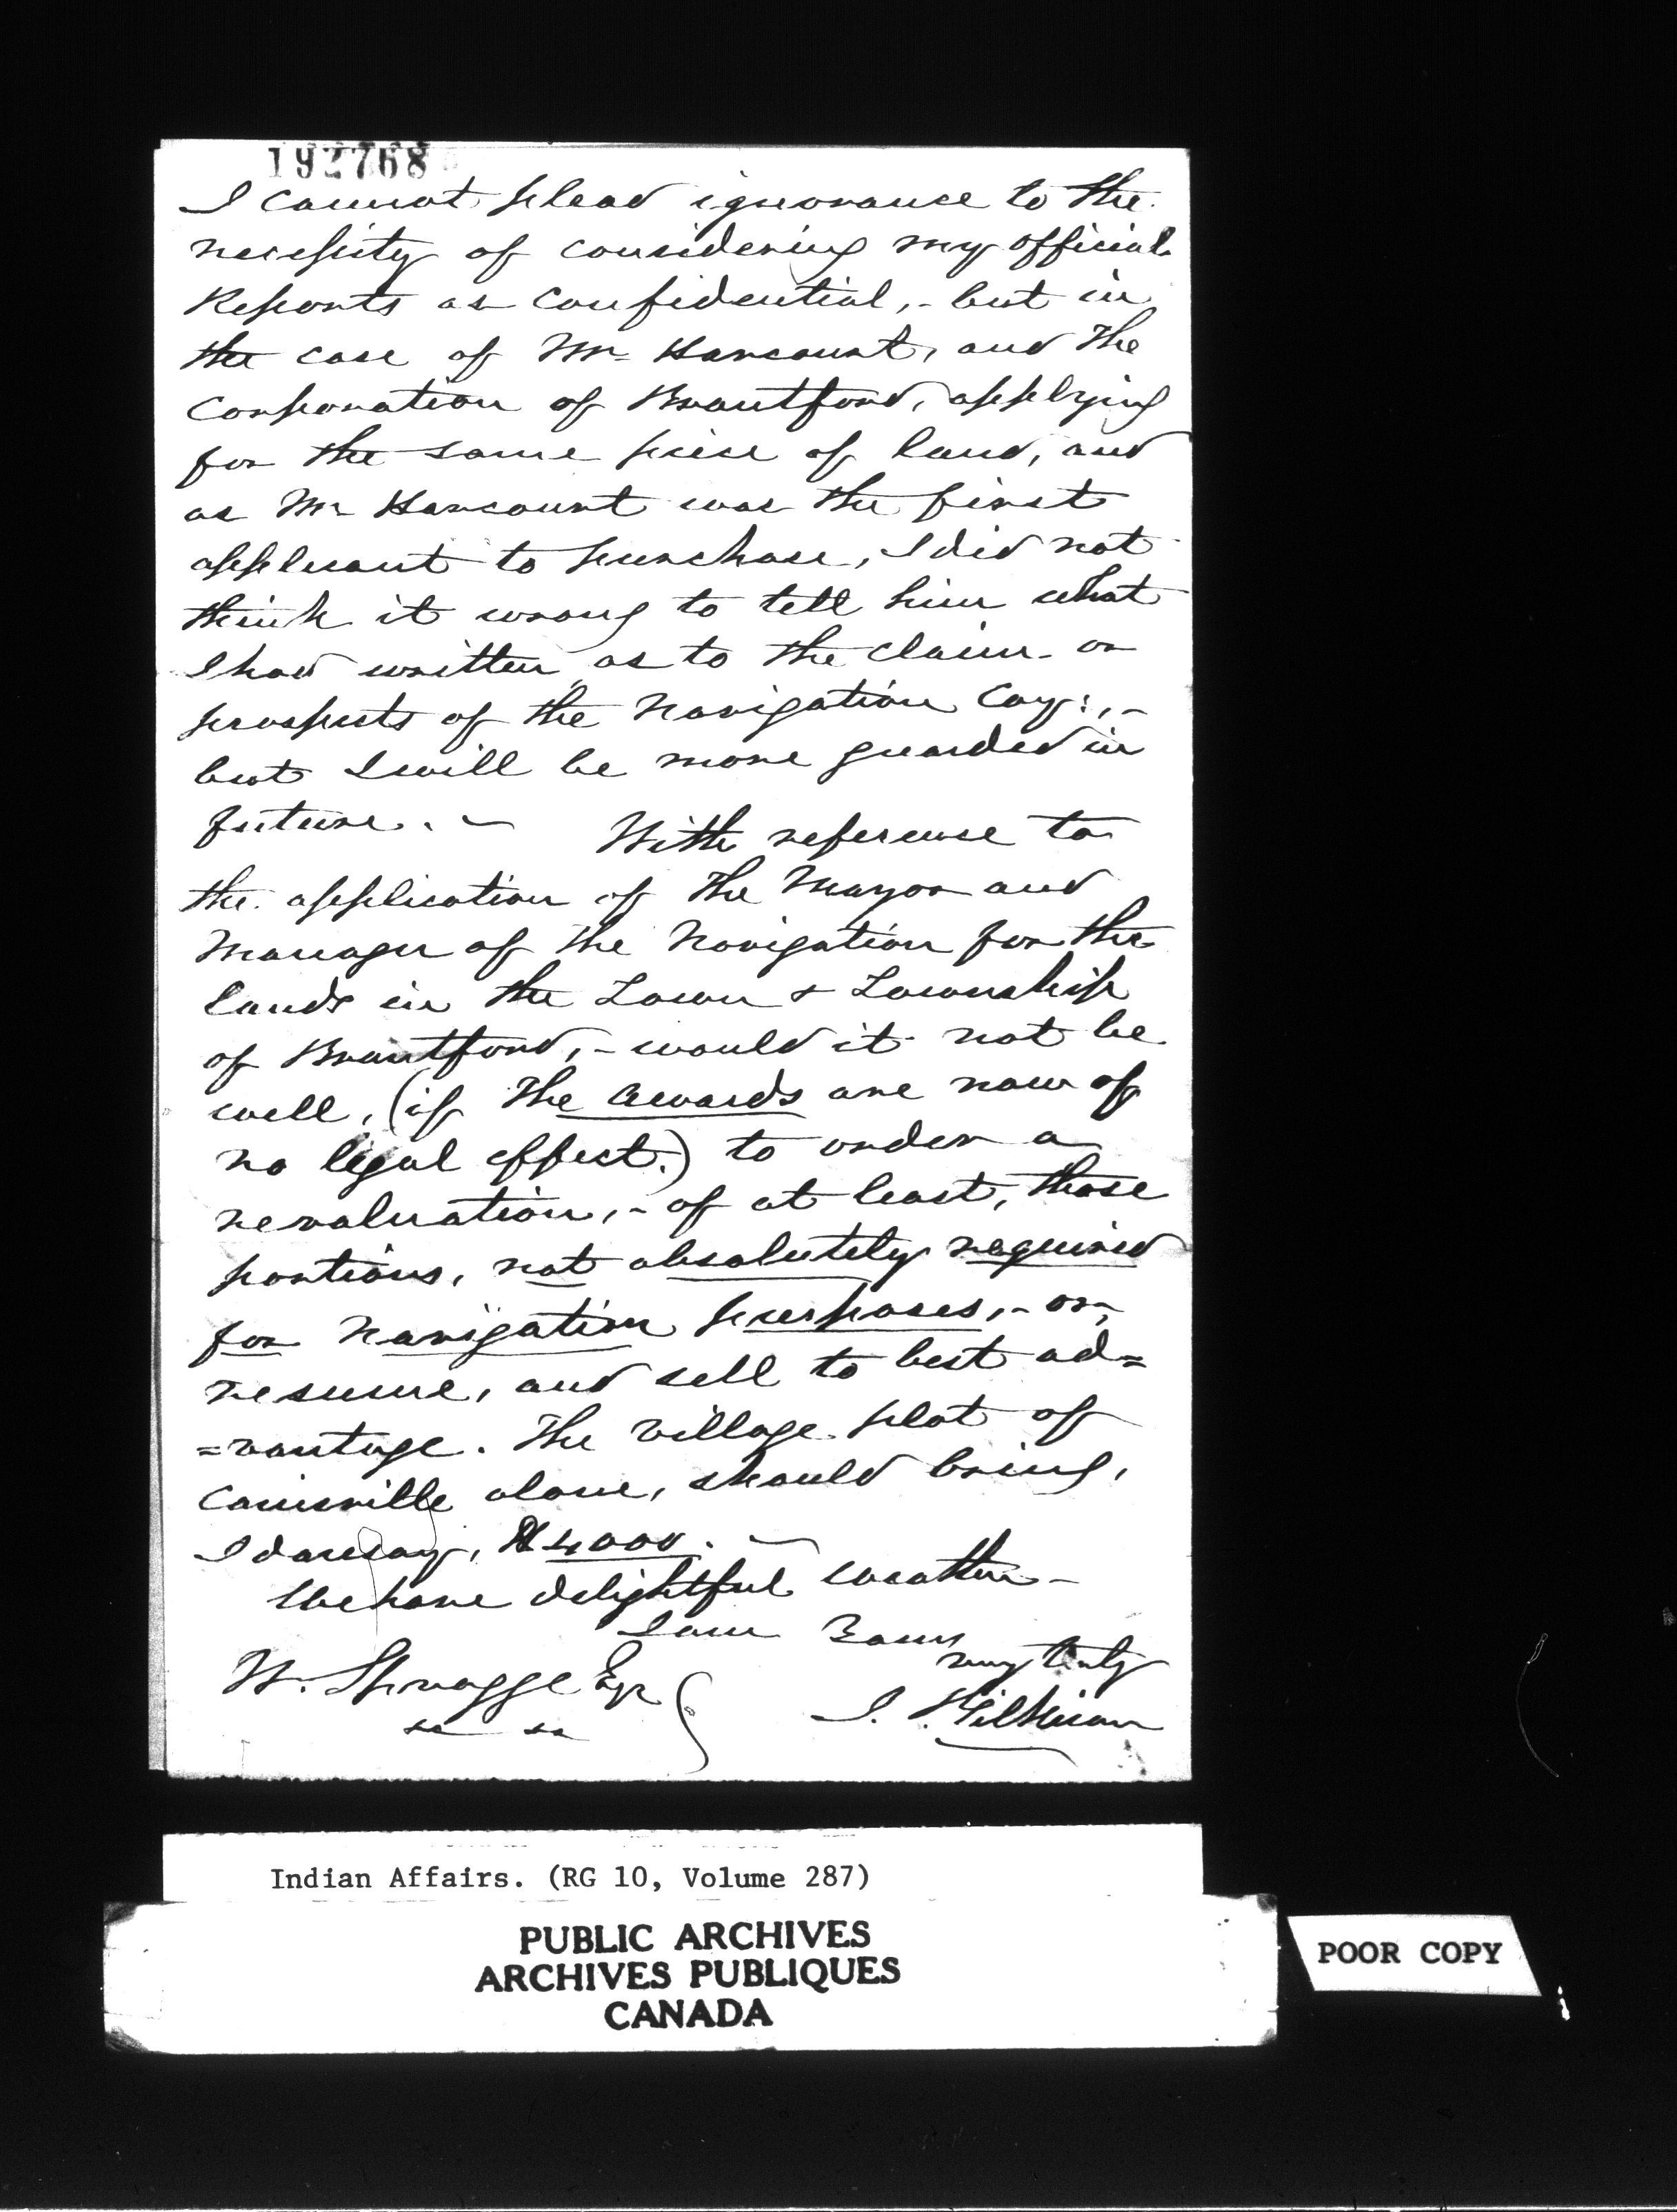 192768
I cannot plead ignorance to the
necessity of considering my official
Reports as confidential,- but in
the case of Mr Harcourt, and the
Corporation of Brantford, applying
for the same piece of land, and
as Mr Harcourt was the first
applicant to purchase, I did not
think it wrong to tell him what
I had written as to the claim or
prospects of the Navigation Coy:,-
but I will be more guarded in
future. - With reference to
the application of the Mayor and
Manager of the Navigation for the
lands in the Town & Township
of Brantford,- would it not be
well, (if the awards are now of
no legal effect.) to order a
revaluation,- of at least, those
portions, not absolutely required
for navigation purposes,- or,
resume, and sell to best ad=
=vantage. The village plot of
Cainsville alone, should bring,
I daresay, $4000. -
We have delightful weather -
I am Yours
very truly
W. Spragge Esqr
J. Gilkison
Indian Affairs. (RG 10, Volume 287)
PUBLIC ARCHIVES
ARCHIVES PUBLIQUES
CANADA
POOR COPY